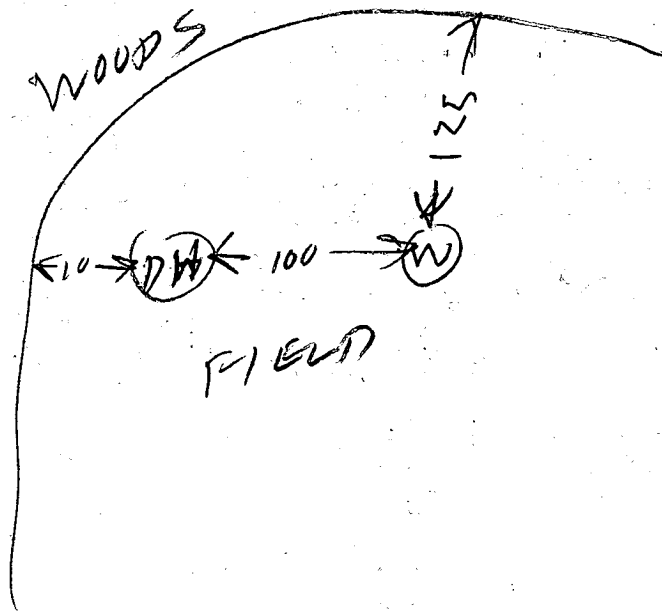 WOODS
125
10 DW 100 W
FIELD